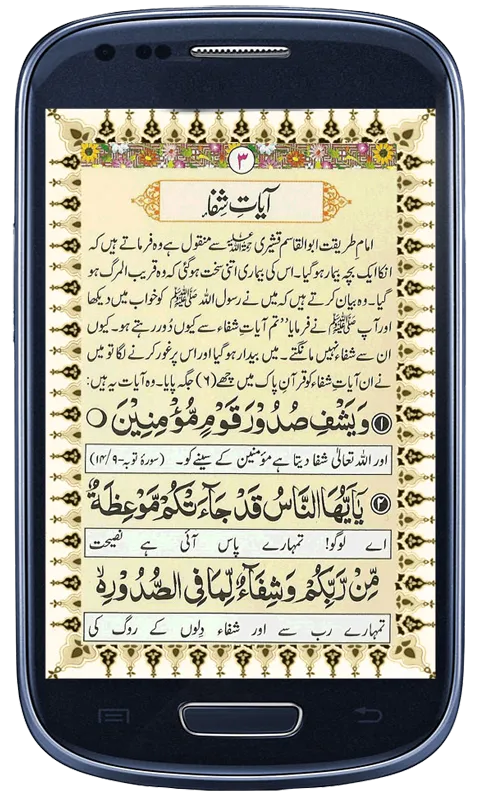 ۳
آیاتِ شِفاء
امام طریقت ابوالقاسم قشیری رحمۃ اللہ علیہ سے منقول ہے وہ فرماتے ہیں کہ
انکا ایک بچہ بیمار ہو گیا۔ اس کی بیماری اتنی سخت ہو گئی کہ وہ قریب المرگ ہو
گیا۔ وہ بیان کرتے ہیں کہ میں نے رسول اللہ ﷺ کو خواب میں دیکھا
اور آپ ﷺ نے فرمایا ’’تم آیاتِ شفاء سے کیوں دُور رہتے ہو۔ کیوں
ان سے شفاء نہیں مانگتے۔ میں بیدار ہو گیا اور اس پر غور کرنے لگا تو میں
نے ان آیاتِ شفاء کو قرآنِ پاک میں چھے (۶) جگہ پایا۔ وہ آیات یہ ہیں:
۱ وَيَشْفِ صُدُوْرَ قَوْمٍ مُّؤْمِنِيْنَ ○
اور اللہ تعالیٰ شفا دیتا ہے مؤمنین کے سینے کو۔ (سورۂ توبہ-۱۴/۹)
۲ يَاَيُّهَا النَّاسُ قَدْ جَآءَتْكُمْ مَّوْعِظَةٌ
اے لوگو! تمہارے پاس آئی ہے نصیحت
مِّنْ رَّبِّكُمْ وَشِفَآءٌ لِّمَا فِى الصُّدُوْرِ
تمہارے رب سے اور شفاء دِلوں کے روگ کی